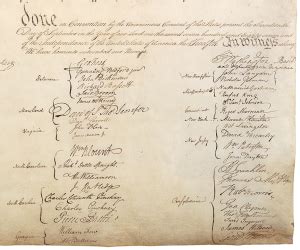 done in Convention by the Unanimous Consent of the States present the Seventeenth
Day of September in the Year of our Lord one thousand seven hundred and
of the Independence of the United States of America the Twelfth In Witness
We have hereunto subscribed our Names
Delaware
Geo: Read
Gunning Bedford jun
John Dickinson
Richard Bassett
Jaco: Broom
Maryland
James McHenry
Dan of St Thos Jenifer
Danl Carroll
Virginia
John Blair
James Madison Jr
North Carolina
Wm Blount
Richd Dobbs Spaight
Hu Williamson
South Carolina
J. Rutledge
Charles Cotesworth Pinckney
Charles Pinckney
Pierce Butler
Georgia
William Few
Abr Baldwin
Go Washington
John Langdon
Nicholas Gilman
Nathaniel Gorham
Rufus King
Wm Saml Johnson
Roger Sherman
Alexander Hamilton
New Jersey
Wil: Livingston
David Brearley
Wm Paterson
Jona: Dayton
B Franklin
Thomas Mifflin
Robt Morris
Geo. Clymer
Jared Ingersoll
James Wilson